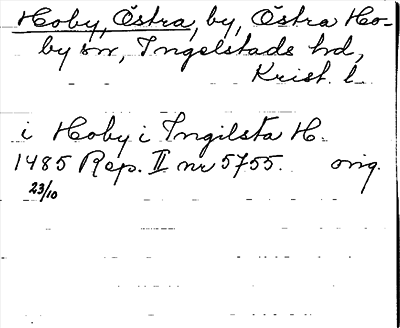 Hoby, Östra, by, Östra Ho-
by sn, Ingelstads hd,
Krist. l.
i Hoby i Ingilsta H.
1485 Rep. II nr 5755. orig.
23/10